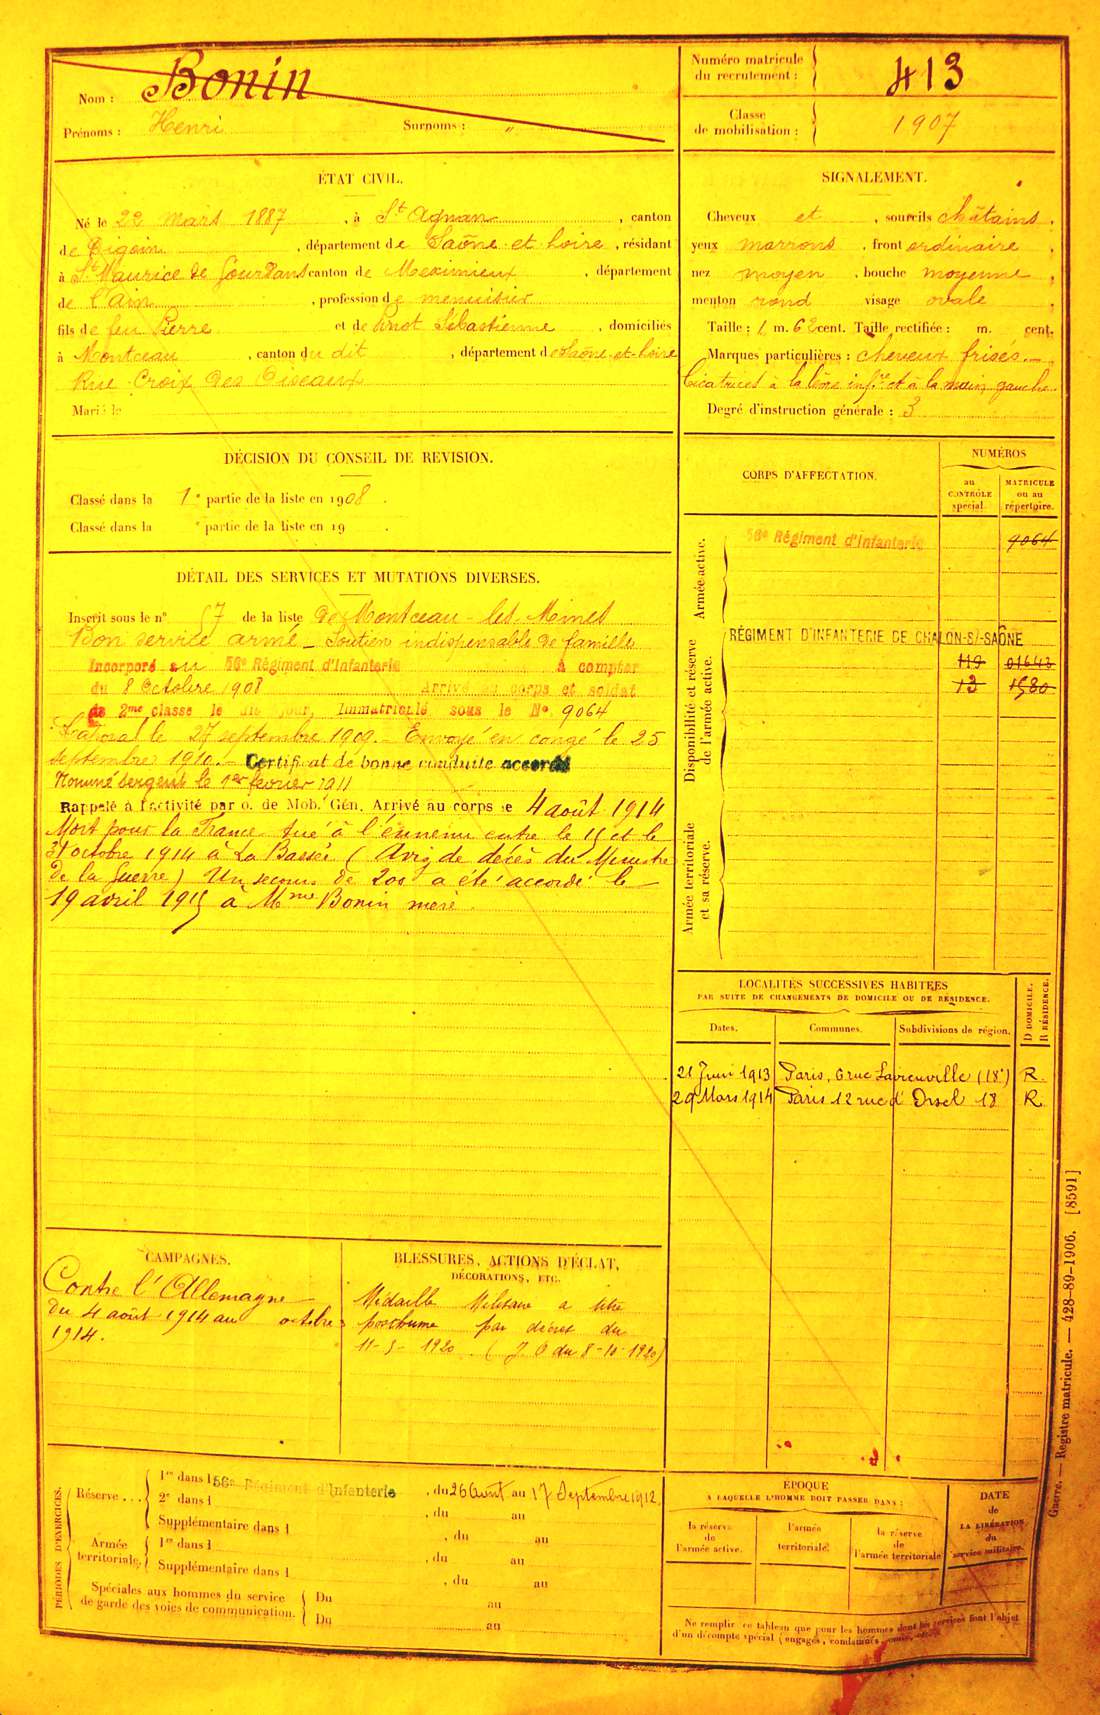 Nom : Bonin
Prénoms : Henri Surnoms : "
Numéro matricule du recrutement : 413
Classe de mobilisation : 1907
ÉTAT CIVIL.
Né le 22 mars 1887, à St Agnan, canton
de Digoin, département de Saône-et-Loire, résidant
à St Maurice de Gourdans canton de Meximieux, département
de l'Ain, profession de menuisier
fils de feu Pierre et de Sébastienne, domiciliés
à Montceau, canton du dit, département de Saône-et-Loire
Rue Croix des Oiseaux
Marié le
SIGNALEMENT.
Cheveux et, sourcils châtains,
yeux marrons, front ordinaire,
nez moyen, bouche moyenne,
menton rond visage ovale
Taille : 1 m. 62 cent. Taille rectifiée : m. cent.
Marques particulières : cheveux frisés.
Cicatrices à la lèvre infre et à la main gauche
Degré d'instruction générale : 3
DÉCISION DU CONSEIL DE REVISION.
Classé dans la 1e partie de la liste en 1908.
Classé dans la e partie de la liste en 19 .
DÉTAIL DES SERVICES ET MUTATIONS DIVERSES.
Inscrit sous le n° 57 de la liste de Montceau-les-Mines
Bon service armé – Soutien indispensable de famille
Incorporé au 56e Régiment d'Infanterie à compter
du 8 Octobre 1908 Arrivé au corps et soldat
de 2me classe le dit jour, Immatriculé sous le No 9064
Caporal le 27 septembre 1909. – Envoyé en congé le 25
septembre 1910. – Certificat de bonne conduite accordé
Nommé Sergent le 1er février 1911
Rappelé à l'activité par o. de Mob. Gén. Arrivé au corps le 4 août 1914
Mort pour la France tué à l'ennemi entre le 15 et le
31 octobre 1914 à La Bassée (Avis de décès du Ministre
de la Guerre) Un secours de 200 a été accordé le
19 avril 1915 à Mme Bonin mère.
CORPS D'AFFECTATION.
NUMÉROS
au CONTRÔLE spécial.
MATRICULE ou au répertoire.
Armée active.
56e Régiment d'Infanterie 9064
Disponibilité et réserve de l'armée active.
RÉGIMENT D'INFANTERIE DE CHALON-S/-SAÔNE
119 01643
13 1580
Armée territoriale et sa réserve.
LOCALITÉS SUCCESSIVES HABITÉES
PAR SUITE DE CHANGEMENTS DE DOMICILE OU DE RÉSIDENCE.
Dates. Communes. Subdivisions de région. D DOMICILE. R RÉSIDENCE.
21 Juin 1913 Paris, 6 rue Lavieuville (18e) R.
29 Mars 1914 Paris 12 rue d'Orsel 18 R
CAMPAGNES.
Contre l'Allemagne
du 4 août 1914 au octobre
1914.
BLESSURES, ACTIONS D'ÉCLAT,
DÉCORATIONS, ETC.
Médaille Militaire a titre
posthume par décret du
11-5-1920. (J. O du 8-10-1920)
PÉRIODES D'EXERCICES.
Réserve... 1re dans l 56e Régiment d'Infanterie, du 26 Août au 17 Septembre 1912.
2e dans l , du au
Supplémentaire dans l , du au
Armée territoriale. 1re dans l , du au
Supplémentaire dans l , du au
Spéciales aux hommes du service de garde des voies de communication. Du au
Du au
ÉPOQUE
A LAQUELLE L'HOMME DOIT PASSER DANS :
la réserve de l'armée active.
l'armée territoriale.
la réserve de l'armée territoriale
DATE de LA LIBÉRATION du service militaire.
Ne remplir ce tableau que pour les hommes dont les services font l'objet
d'un décompte spécial (engagés, condamnés, omis, etc.)
Guerre. — Registre matricule. — 428-89-1906. [8591]